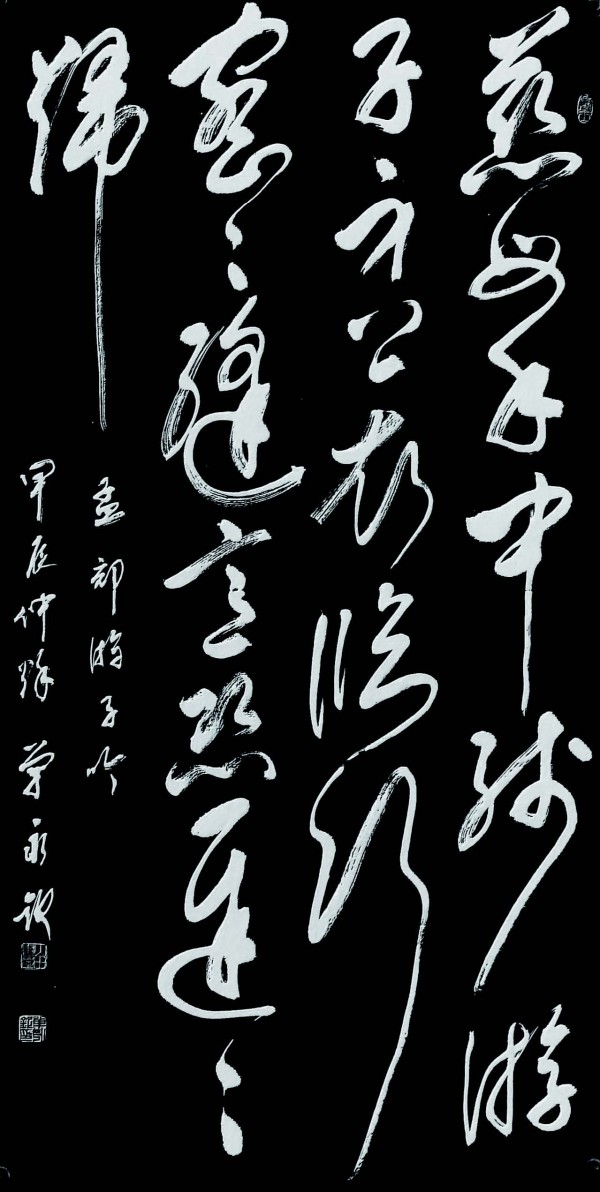 慈母手中线游
子身上衣临行
密〻缝意恐迟〻
归
孟郊游子吟
甲辰仲秋 永钦